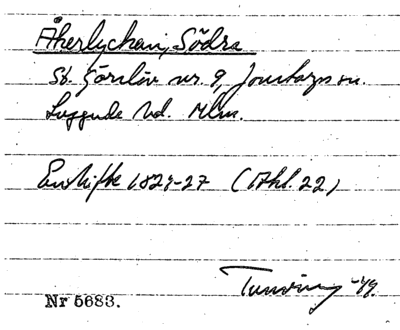 Åkerlyckan, Södra
St. Görslöv nr 9, Jonstorps sn.
Luggude hd. Mlm.
Enskifte 1824-27 (Akt. 22)
Nr 5683.